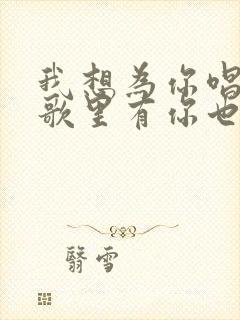 我想为你唱
歌里有你也
翳雪